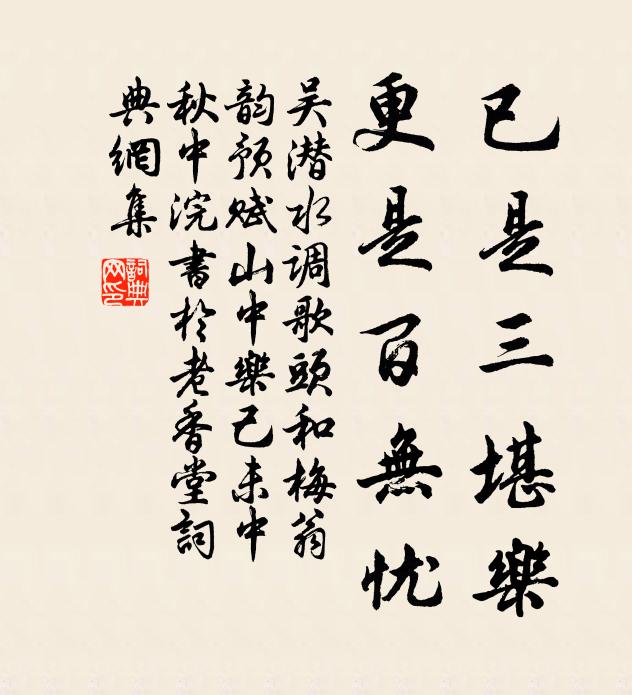 已是三堪樂
更是百無忧
吴潜水调歌頭和梅翁
韵预赋山中樂己未中
秋中浣書於老香堂詞
典網集
詞典
网印